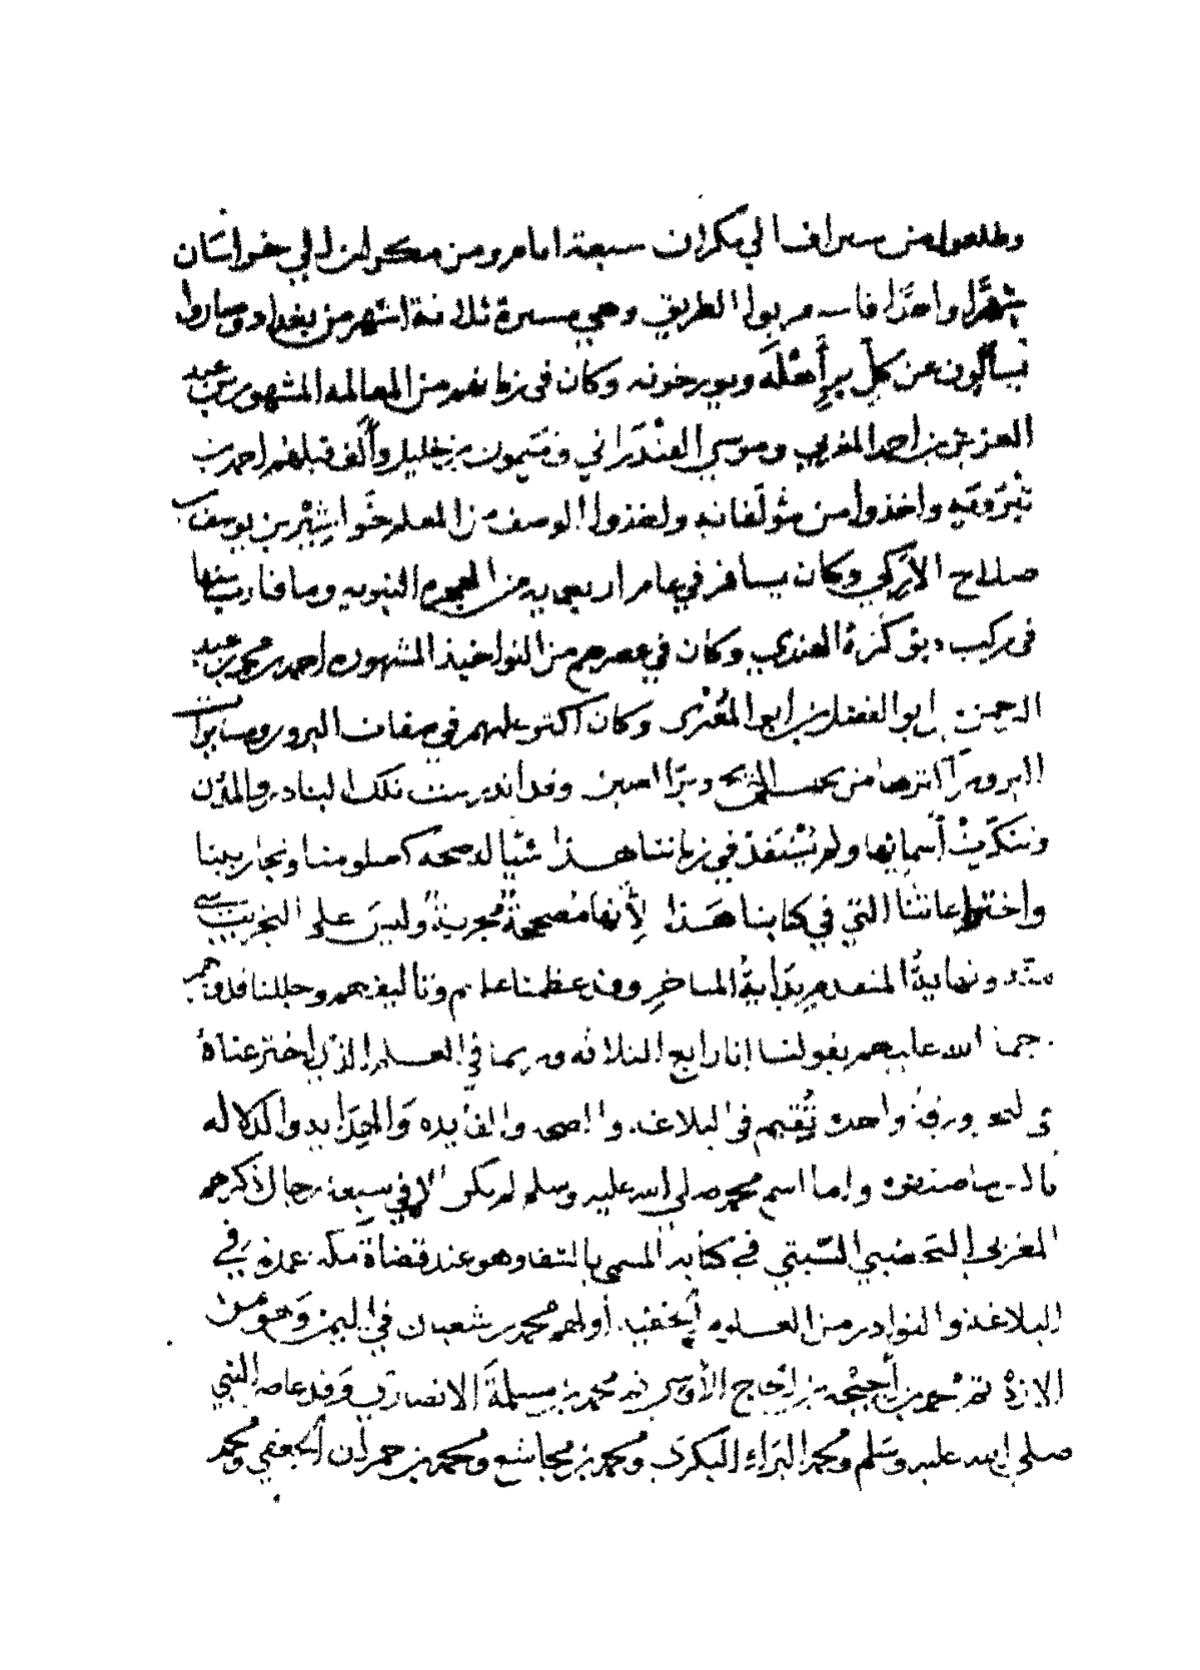 وطلعوا من سيراف الي مكران سبعة ايام ومن مكران الي خراسان
شهرًا واحدًا فاستقربوا الطريق وهي مسيرة ثلاثة اشهر من بغداد وصاروا
يسألون عن كلّ برٍّ أهْلَهُ ويورخونه وكان في زمانهم من المعالمه المشهورين عبد
العزيز بن احمد المغربي وموسي القندراني وميمون بن خليل وألّف قبلهم احمد بن
تبرويه واخذوا من مؤلفاته ولخذوا الوصف من المعلم خواشير بن يوسف بن
صلاح الاركي وكان يسافر في عام اربعمايه من الهجره النبويه وما قاربها
في مركب دبوكره الهندي وكان في عصرهم من النواخيذ المشهورين احمد بن محمد بن عبد
الرحمن بن ابو الفضل بن ابو المغيري وكان اكثر علمهم في صفات البرور وصابوا
البرور اكثرها من تحت الريح وبرّ الصين وقد اندرست تلك البنادر والمدن
وتنكرت أسمائها ولم يُستفد في زماننا هذا شيًا له صحه كعلومنا وتجاربنا
واختراعاتنا التي في كتابنا هذا لأنها مصححةٌ مجربةٌ وليس علي التجريب شي
ونهايةُ المتقدم بدايةُ المتاخر وقد عظمنا علمهم وتاليفهم وجللنا قدرهم
رحمة الله عليهم بقولنا انا رابع الثلاثه وربما في العلم الذي اخترعناه
في البحر ورقةٌ واحده تُقيم في البلاغه والصحه والفايده والهدايه والدلاله
باكثر ما صنفوه واما اسم محمد صلي الله عليه وسلم لم يكن الا في سبعة رجال ذكرهم
المغربي اليحضبي السبتي في كتابه المسمي بالشفا وهو عند قضاة مكه عمده في
البلاغه والنوادر من العلوم أولهم محمد بن شعبان في اليمن وهو من
الازد ثم محمد بن أحيحه بن الجلاح الأوسي ثم محمد بن مسلمة الانصاري وقد عاصر النبي
صلي الله عليه وسلم ومحمد البراء البكري ومحمد بن مجاشع ومحمد بن حمران الجعفي ومحمد